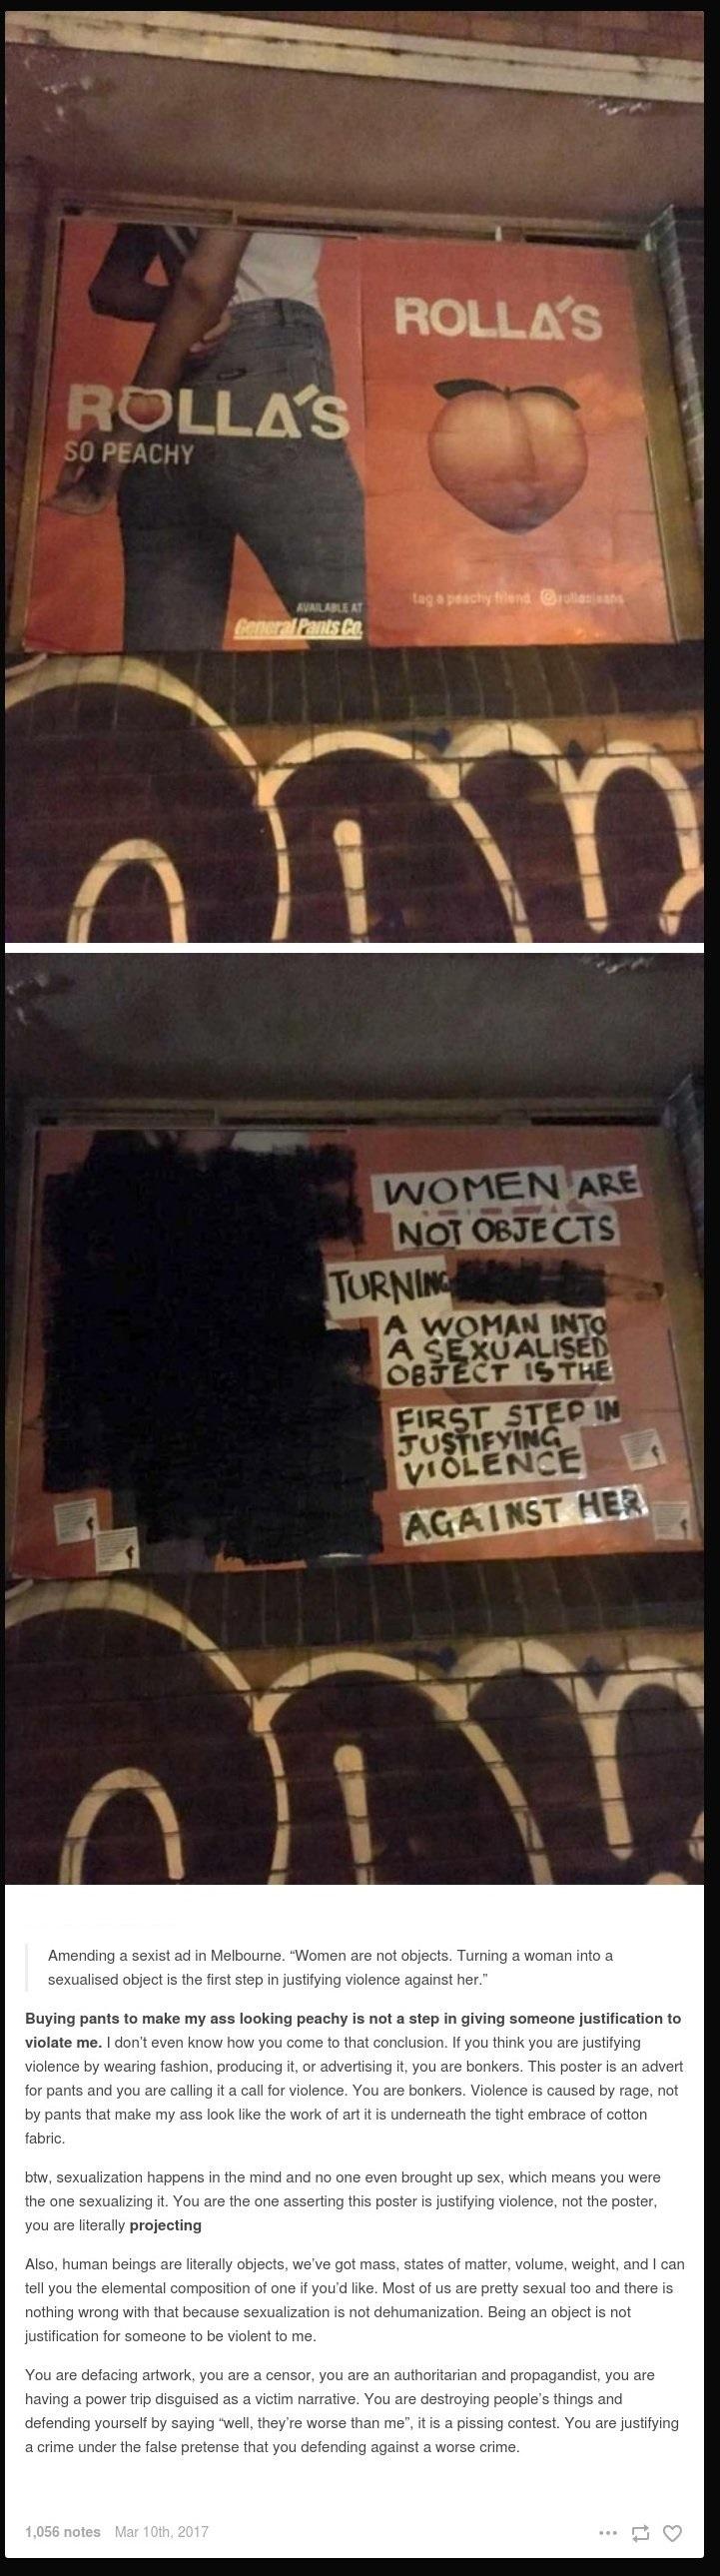 ROLLA'S
SO PEACHY
AVAILABLE AT
General Pants Co.
ROLLA'S
tag a peachy friend
WOMEN ARE
NOT OBJECTS
TURNING
A WOMAN INTO
A SEXUALISED
OBJECT IS THE
FIRST STEP IN
JUSTIFYING
VIOLENCE
AGAINST HER
Amending a sexist ad in Melbourne. “Women are not objects. Turning a woman into a
sexualised object is the first step in justifying violence against her.”
Buying pants to make my ass looking peachy is not a step in giving someone justification to
violate me. I don’t even know how you come to that conclusion. If you think you are justifying
violence by wearing fashion, producing it, or advertising it, you are bonkers. This poster is an advert
for pants and you are calling it a call for violence. You are bonkers. Violence is caused by rage, not
by pants that make my ass look like the work of art it is underneath the tight embrace of cotton
fabric.
btw, sexualization happens in the mind and no one even brought up sex, which means you were
the one sexualizing it. You are the one asserting this poster is justifying violence, not the poster,
you are literally projecting
Also, human beings are literally objects, we’ve got mass, states of matter, volume, weight, and I can
tell you the elemental composition of one if you’d like. Most of us are pretty sexual too and there is
nothing wrong with that because sexualization is not dehumanization. Being an object is not
justification for someone to be violent to me.
You are defacing artwork, you are a censor, you are an authoritarian and propagandist, you are
having a power trip disguised as a victim narrative. You are destroying people’s things and
defending yourself by saying “well, they’re worse than me”, it is a pissing contest. You are justifying
a crime under the false pretense that you defending against a worse crime.
1,056 notes Mar 10th, 2017